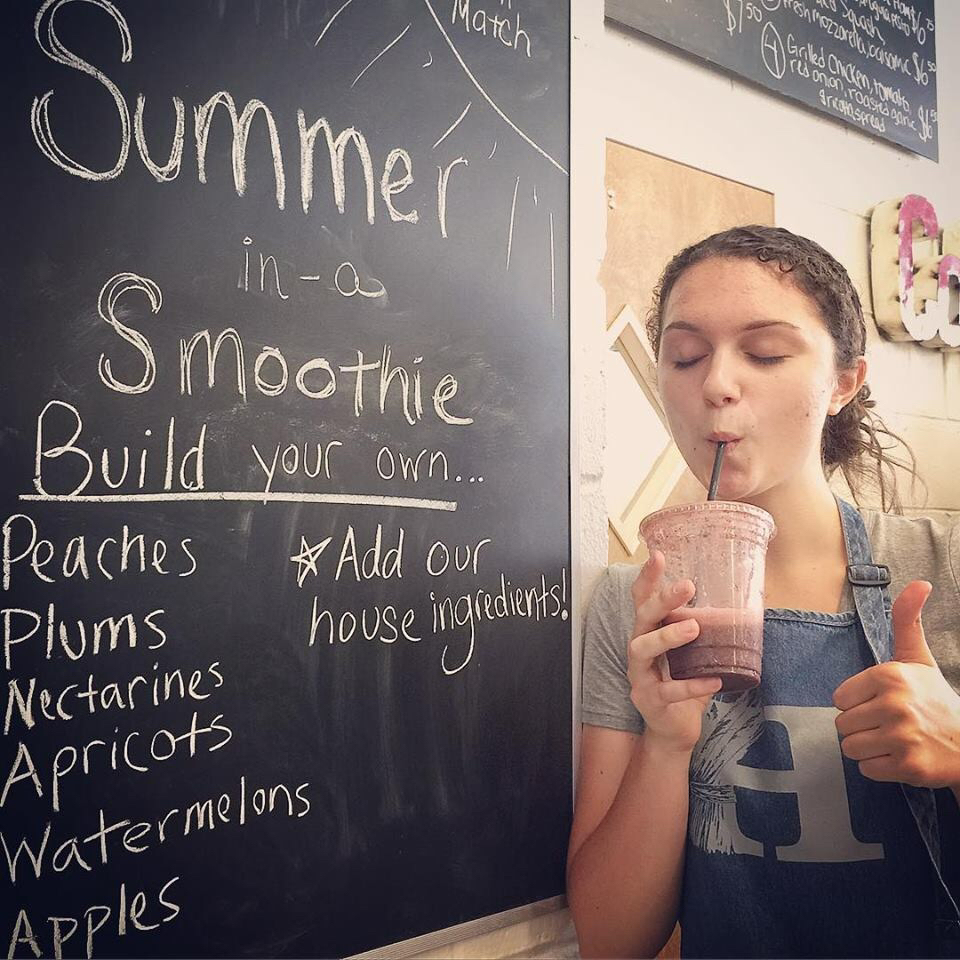 Match
Summer
in-a
Smoothie
Build your own...
Peaches
Plums
Nectarines
Apricots
Watermelons
Apples
☆Add our
house ingredients!
$7.50
Squash,
fresh mozzarella, balsamic $6.50
④ Grilled Chicken, tomato,
red onion, roasted garlic $6.50
ricotta spread